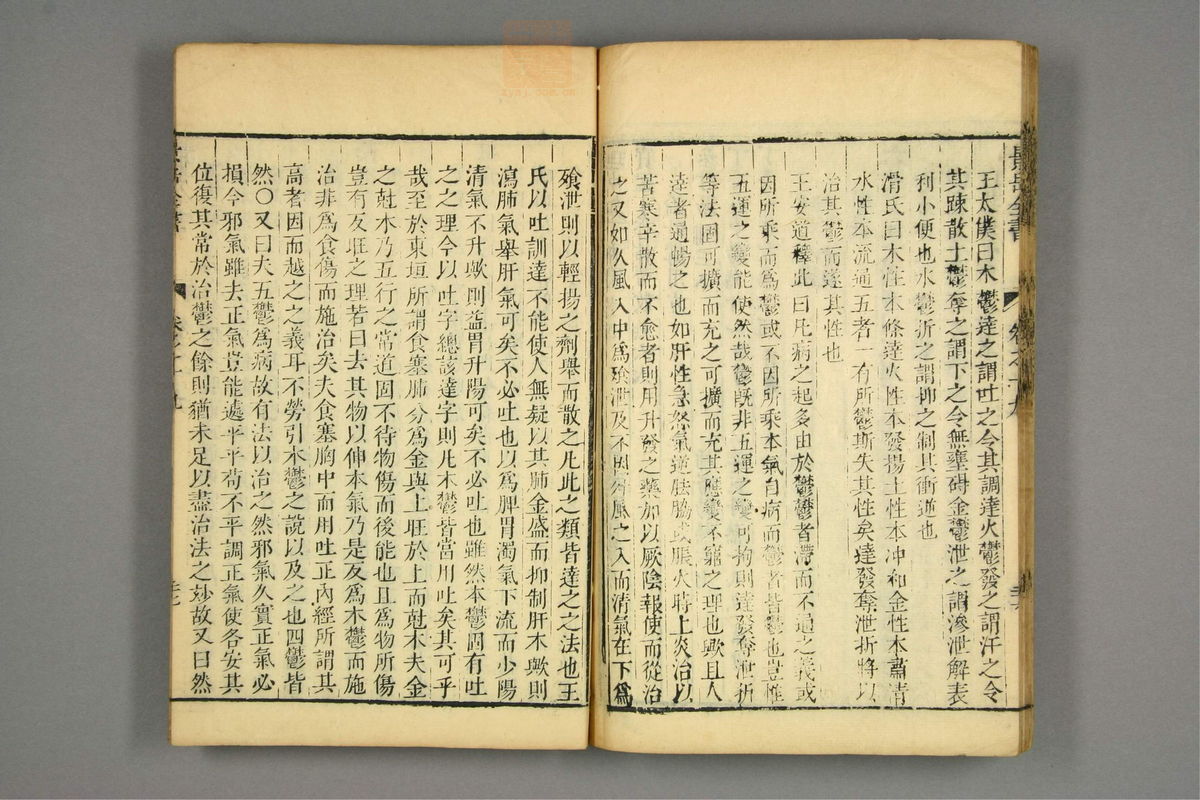 王太僕曰木鬱達之謂吐之令其調達火鬱發之謂汗之令
其踈散土鬱奪之謂下之令無壅碍金鬱泄之謂滲泄解表
利小便也水鬱折之謂抑之制其衝逆也
滑氏曰木性本條達火性本發揚土性本冲和金性本肅清
水性本流通五者一有所鬱斯失其性矣達發奪泄折將以
治其鬱而遂其性也
王安道釋此曰凡病之起多由於鬱鬱者滯而不通之義或
因所乘而爲鬱或不因所乘本氣自病而鬱者皆鬱也豈惟
五運之變能使然哉鬱旣非五運之變可拘則達發奪泄折
等法固可擴而充之可擴而充其應變不窮之理也歟且夫
達者通暢之也如肝性急怒氣逆胠脇或脹火時上炎治以
苦寒辛散而不愈者則用升發之藥加以厥陰報使而從治
之又如久風入中爲飱泄及不因外風之入而清氣在下爲
飱泄則以輕揚之劑舉而散之凡此之類皆達之之法也王
氏以吐訓達不能使人無疑以其肺金盛而抑制肝木歟則
瀉肺氣舉肝氣可矣不必吐也以爲脾胃濁氣下流而少陽
清氣不升歟則益胃升陽可矣不必吐也雖然木鬱固有吐
之之理今以吐字總該達字則凡木鬱皆當用吐矣其可乎
哉至於東垣所謂食塞肺分爲金與土旺於上而尅木夫金
之尅木乃五行之常道固不待物傷而後能也且爲物所傷
豈有反旺之理若曰去其物以伸木氣乃是反爲木鬱而施
治非爲食傷而施治矣夫食塞胸中而用吐正內經所謂其
高者因而越之之義耳不勞引木鬱之說以及之也四鬱皆
然〇又曰夫五鬱爲病故有法以治之然邪氣久實正氣必
損今邪氣雖去正氣豈能遽平乎苟不平調正氣使各安其
位復其常於治鬱之餘則猶未足以盡治法之妙故又曰然
景岳全書
卷之十九